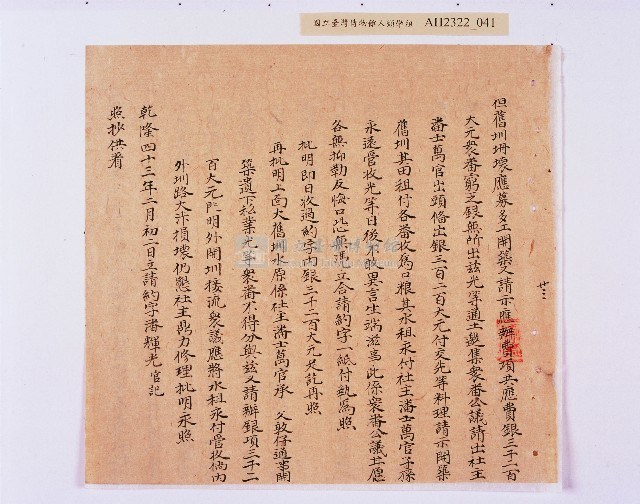 國立臺灣博物館人類學組 AH2322_041
廿三
但舊圳坍壞應募多工開築又請示應辦費項共應費銀三千二百
大元衆番窮乏銀無所出玆光等通土邀集衆番公議請出社主
潘士萬官出頭俻出銀三百二百大元付交光等料理請示開築
舊圳其田租付各番收為口粮其水租永付社主潘士萬官子孫
永遠管收光等日後不敢異言生端滋事此係衆番公議甘愿
各無抑勒反悔口恐無憑立合請約字一紙付執為照
批明即日收過約字内銀三千二百大元足訖再照
再批明上尚大舊圳水原係社主潘士萬官承 父敦仔通事開
築遺下私業光等衆番不得分與玆又請辦銀項三千二
百大元 明外開圳接流衆議應將水租永付管收倘内
外圳路大汴損壞仍懇社主鼎力修理批明永照
乾隆四十三年二月初二日立請約字潘輝光官記
照抄供看
國立臺灣博物館